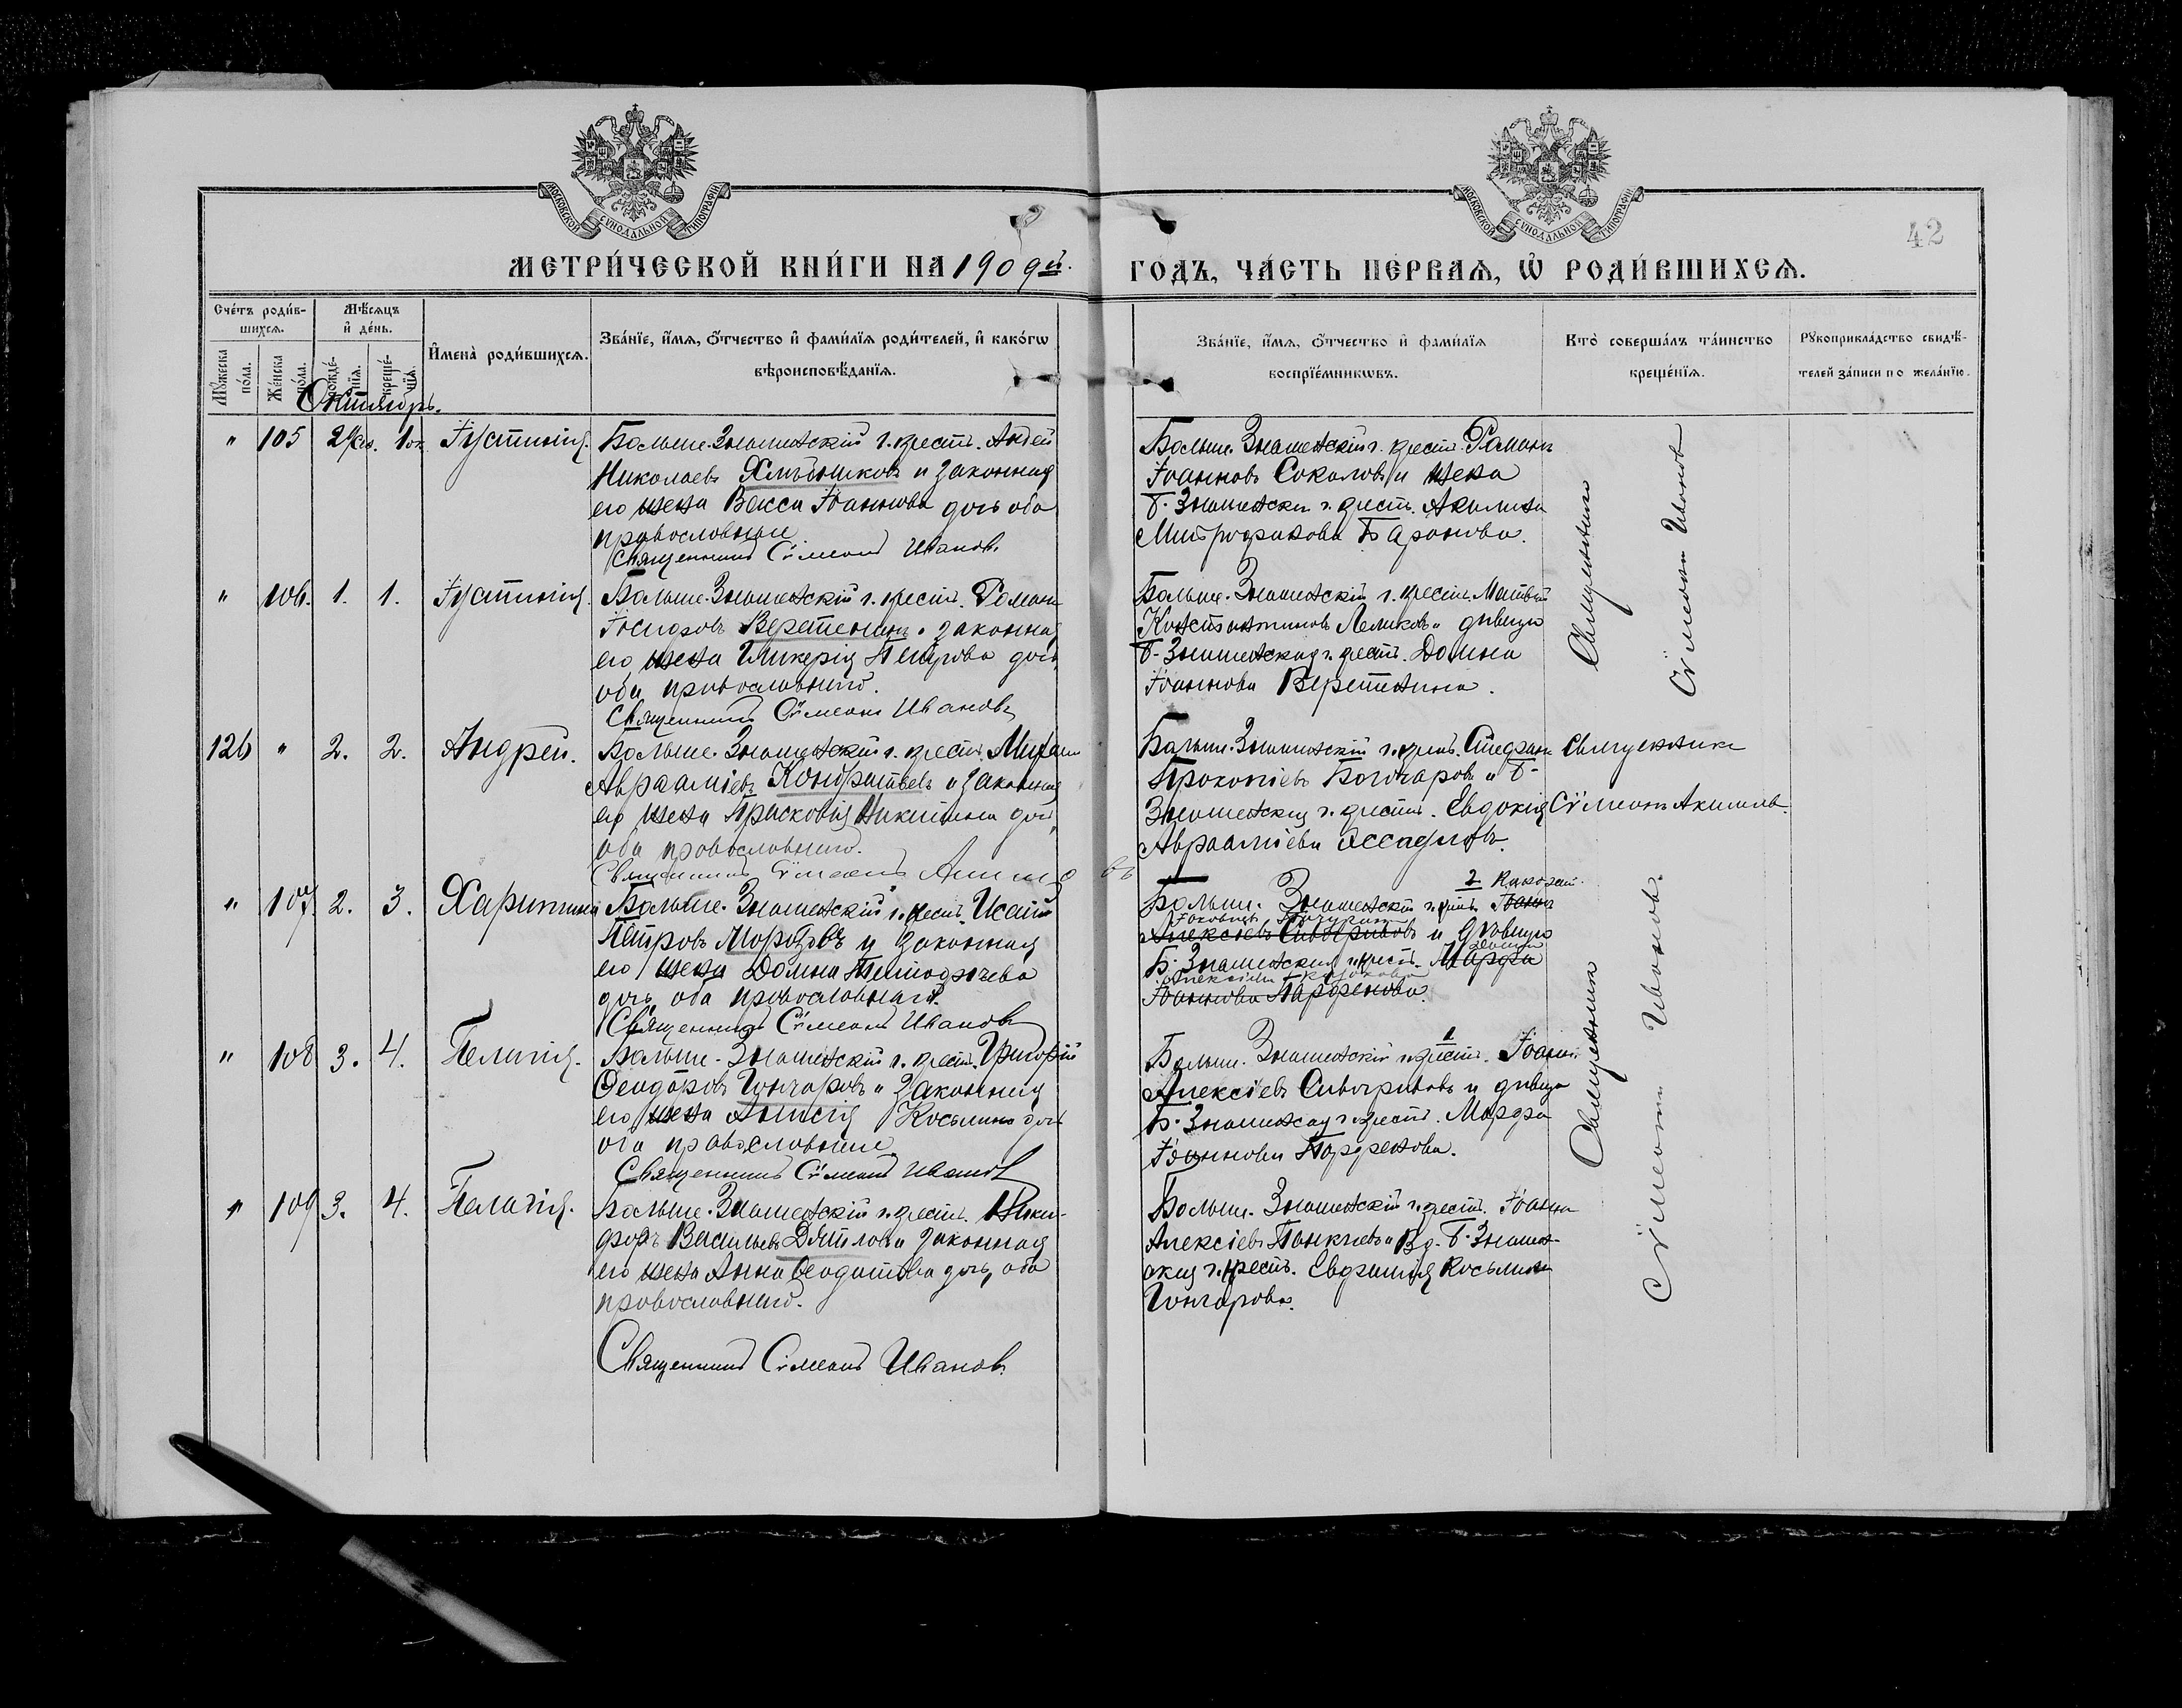 МОСКОВСКОЙ СѴНОДАЛЬНОЙ ТИПОГРАФІИ
МОСКОВСКОЙ СѴНОДАЛЬНОЙ ТИПОГРАФІИ
42
МЕТРИ́ЧЕСКОЙ КНИ́ГИ НА 1909й.
ГОДЪ, ЧА́СТЬ ПЕ́РВАѦ, Ѡ҆ РОДИ́ВШИХСѦ.
Сче́тъ роди́в-
шихсѧ.
Мꙋ́жеска по́ла.
Же́нска по́ла.
Мѣ́сѧцъ
и҆ де́нь.
рожде́-нїѧ.
креще́-нїѧ.
И҆мена̀ роди́вшихсѧ.
Зва́нїе, и҆́мѧ, ѻ҆́тчество и҆ фами́лїѧ роди́телей, и҆ како́гѡ
вѣроисповѣ́данїѧ.
Зва́нїе, и҆́мѧ, ѻ҆́тчество и҆ фами́лїѧ
воспрїе́мникѡвъ.
Кто̀ соверша́лъ та́инство
креще́нїѧ.
Рꙋкоприкла́дство свидѣ́-
телей за́писи по жела́нїю.
Октябрь.
" 105 1 Іустинія. Больше-Знаменскій г. крест.
Николаевъ Хмѣльниковъ и законная
его жена Васса Іоаннова дочь оба
православные
Священникъ Сѵмеонъ Ивановъ
Больше-Знаменскій г. крест. Романъ
Іоанновъ Соколовъ и жена
Б-Знаменскаго г. крест. Акилина
Митрофанова Баранова.
" 106. 1. 1. Іустинія. Больше-Знаменскій г. крест. Романъ
Іосифовъ Веретенинъ и законная
его жена Гликерія Петрова дочь
оба православные.
Священникъ Сѵмеонъ Ивановъ
Больше-Знаменскій г. крест. Матвѣй
Константиновъ и дѣвица
Б-Знаменская г. крест. Домна
Іоаннова Веретенина.
Священникъ
Сѵмеонъ Ивановъ
126 " 2. 2. Андрей. Больше-Знаменскій г. крест. Михаилъ
Авраміевъ Кондратьевъ и законная
его жена Прасковія Никитина дочь,
оба православные.
Священникъ Сѵмеонъ Акимовъ
Больше-Знаменскій г. крест. Стефанъ
Прокопіевъ и Б-
Знаменская г. крест. Евдокія
Авраміева
Священникъ
Сѵмеонъ Акимовъ.
" 107 2. 3. Харитина Больше-Знаменскій г. крест. Исаія
Петровъ Морозовъ и законная
его жена Домна Тимофѣева
дочь, оба православные.
Священникъ Сѵмеонъ Ивановъ
2
Больше-Знаменскій г. крест. Іоаннъ
Алексіевъ и дѣвица
Б-Знаменская г. крест. Марфа
Алексіева
Іоаннова Парфенова.
" 108 3. 4. Пелагія. Больше-Знаменскій г. крест. Григорій
Феодоровъ Гончаровъ и законная
его жена Анисія Косьмина дочь
оба православные
Священникъ Сѵмеонъ Ивановъ
1
Больше-Знаменскій г. крест. Іоаннъ
Алексіевъ и дѣвица
Б-Знаменская г. крест. Марфа
Іоаннова Парфенова.
" 109 3. 4. Пелагія. Больше-Знаменскій г. крест. Ники-
форъ Васильевъ Дятловъ и законная
его жена Анна Феодотова дочь, оба
православные.
Священникъ Сѵмеонъ Ивановъ.
Больше-Знаменскій г. крест. Іоаннъ
Алексіевъ и Вд. Б-Знамен-
ская г. крест. Евфимія Косьмина
Гончарова.
Священникъ
Сѵмеонъ Ивановъ.